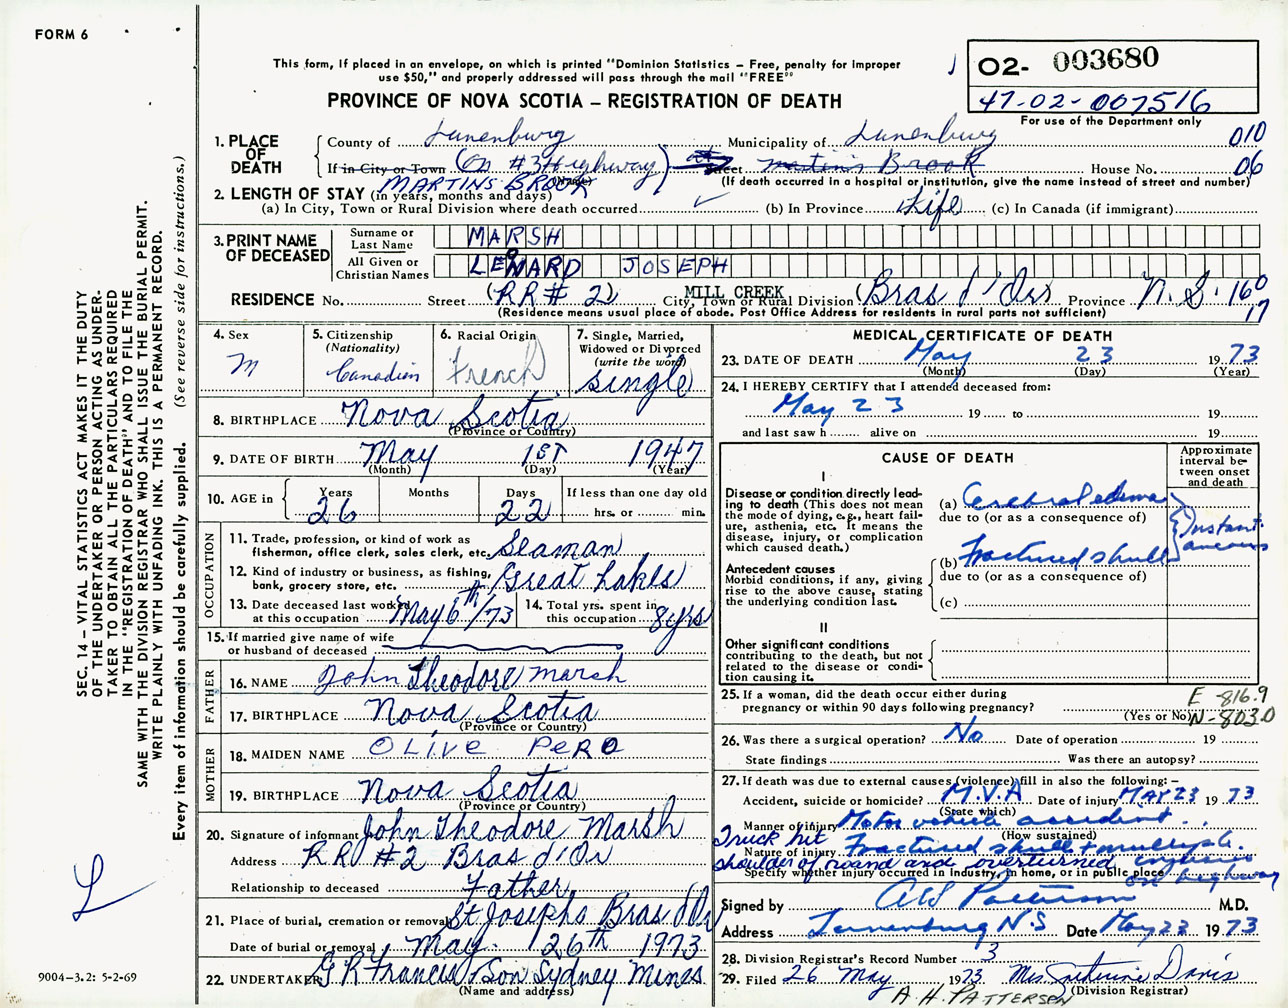 FORM 6
This form, if placed in an envelope, on which is printed "Dominion Statistics – Free, penalty for improper
use $50," and properly addressed will pass through the mail "FREE"
PROVINCE OF NOVA SCOTIA – REGISTRATION OF DEATH
O2- 003680
47-02-007516
For use of the Department only
1. PLACE OF DEATH
County of Lunenburg Municipality of Lunenburg 010
If in City or Town (On #3 Highway) Street Martin's Brook House No. 06
MARTINS BROOK (If death occurred in a hospital or institution, give the name instead of street and number)
2. LENGTH OF STAY (in years, months and days)
(a) In City, Town or Rural Division where death occurred (b) In Province Life (c) In Canada (if immigrant)
3. PRINT NAME OF DECEASED
Surname or Last Name MARSH
All Given or Christian Names LEONARD JOSEPH
RESIDENCE No. Street (RR# 2) MILL CREEK City, Town or Rural Division (Bras d'Or) Province N.S. 160
(Residence means usual place of abode. Post Office Address for residents in rural parts not sufficient) 17
4. Sex M
5. Citizenship (Nationality) Canadian
6. Racial Origin French
7. Single, Married, Widowed or Divorced (write the word) single
8. BIRTHPLACE Nova Scotia
(Province or Country)
9. DATE OF BIRTH May 1st 1947
(Month) (Day) (Year)
10. AGE in Years 26 Months Days 22 If less than one day old hrs. or min.
OCCUPATION
11. Trade, profession, or kind of work as
fisherman, office clerk, sales clerk, etc. Seaman
12. Kind of industry or business, as fishing,
bank, grocery store, etc. Great Lakes
13. Date deceased last worked at this occupation May 6th/73
14. Total yrs. spent in this occupation 8 yrs
15. If married give name of wife
or husband of deceased
FATHER
16. NAME John Theodore Marsh
17. BIRTHPLACE Nova Scotia
(Province or Country)
MOTHER
18. MAIDEN NAME OLIVE PERO
19. BIRTHPLACE Nova Scotia
(Province or Country)
20. Signature of informant John Theodore Marsh
Address RR #2 Bras d'Or
Relationship to deceased Father
21. Place of burial, cremation or removal St Josephs Bras d'Or
Date of burial or removal May 26th 1973
22. UNDERTAKER G R Francis & Son Sydney Mines
(Name and address)
MEDICAL CERTIFICATE OF DEATH
23. DATE OF DEATH May 23 1973
(Month) (Day) (Year)
24. I HEREBY CERTIFY that I attended deceased from:
May 23 19 to 19
and last saw h alive on 19
CAUSE OF DEATH
Approximate interval between onset and death
I
Disease or condition directly lead-
ing to death (This does not mean
the mode of dying, e.g., heart fail-
ure, asthenia, etc. It means the
disease, injury, or complication
which caused death.)
(a) Cerebral edema
due to (or as a consequence of)
Instantaneous
(b) Fractured skull
Antecedent causes
Morbid conditions, if any, giving
rise to the above cause, stating
the underlying condition last.
due to (or as a consequence of)
(c)
II
Other significant conditions
contributing to the death, but not
related to the disease or condi-
tion causing it.
25. If a woman, did the death occur either during
pregnancy or within 90 days following pregnancy?
(Yes or No)
E 816.9
N-803.0
26. Was there a surgical operation? No Date of operation 19
State findings Was there an autopsy?
27. If death was due to external causes (violence) fill in also the following: –
Accident, suicide or homicide? M.V.A Date of injury MAY 23 1973
(State which)
Manner of injury Motor vehicle accident
(How sustained)
Truck hit
Nature of injury Fractured skull + multiple
shoulder of road and overturned
Specify whether injury occurred in industry, in home, or in public place on highway
Signed by M.D.
Address Lunenburg N.S Date May 23 1973
28. Division Registrar's Record Number 3
29. Filed 26 May 1973 Mrs Davis
(Division Registrar)
A H PATTERSEN
SEC. 14 – VITAL STATISTICS ACT MAKES IT THE DUTY
OF THE UNDERTAKER OR PERSON ACTING AS UNDER-
TAKER TO OBTAIN ALL THE PARTICULARS REQUIRED
IN THE "REGISTRATION OF DEATH" AND TO FILE THE
SAME WITH THE DIVISION REGISTRAR WHO SHALL ISSUE THE BURIAL PERMIT.
WRITE PLAINLY WITH UNFADING INK. THIS IS A PERMANENT RECORD.
Every item of information should be carefully supplied. (See reverse side for instructions.)
L
9004-3.2: 5-2-69